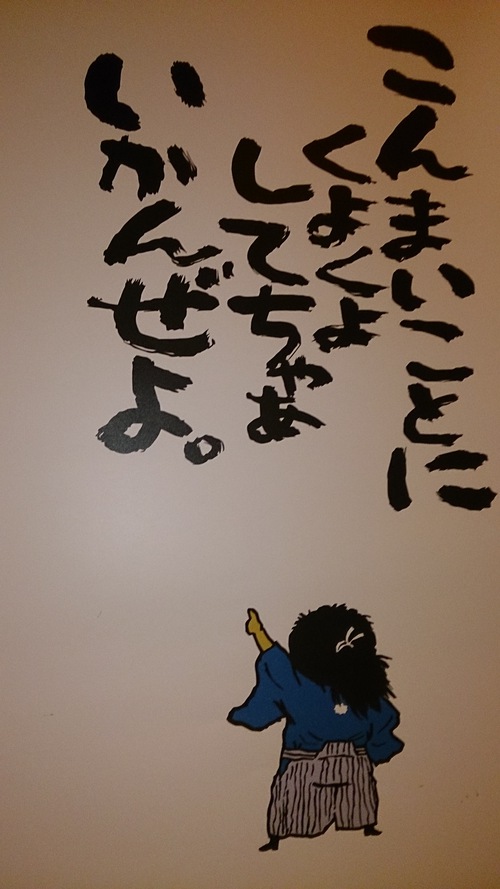 こんまいことに
くよくよ
してちゃぁ
いかんぜよ。